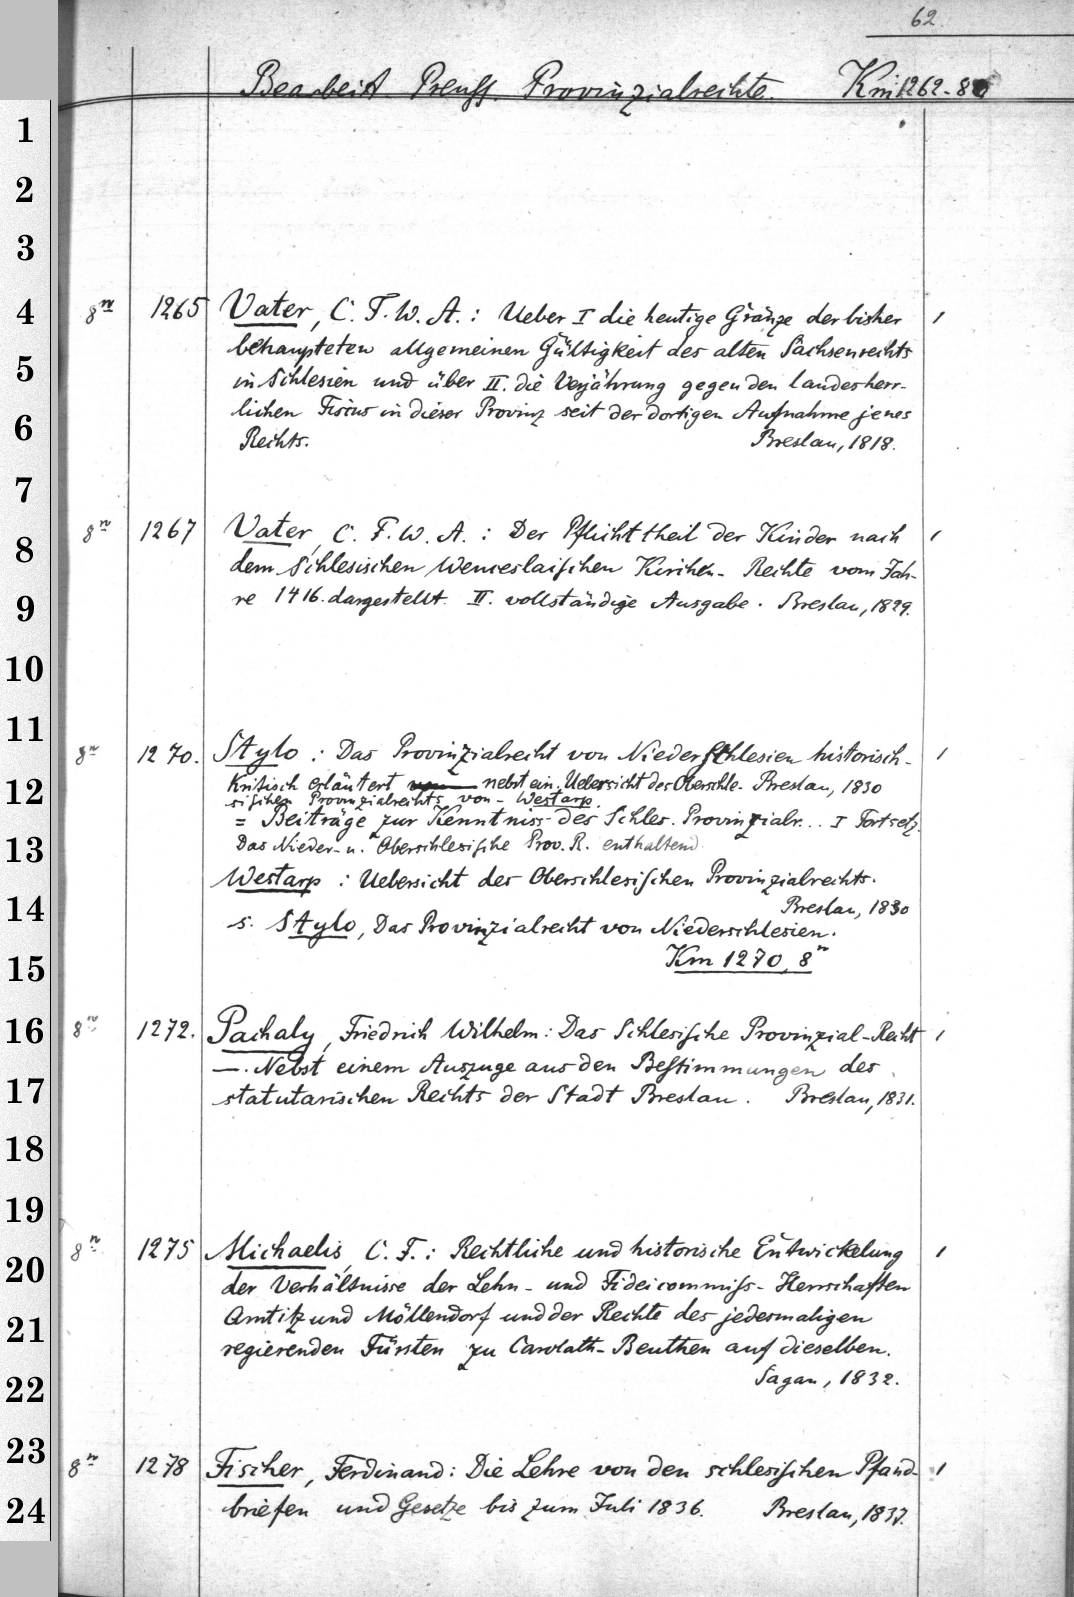 62.
Bearbeit. Preuss. Provinzialrechte. Km 1262-80
1
2
3
4
5
6
7
8
9
10
11
12
13
14
15
16
17
18
19
20
21
22
23
24
8n 1265 Vater, C. F. W. A.: Ueber I die heutige Gränze der bisher 1
behaupteten allgemeinen Gültigkeit des alten Sachsenrechts
in Schlesien und über II. die Verjährung gegen den landesherr-
lichen Fiscus in dieser Provinz seit der dortigen Aufnahme jenes
Rechts. Breslau, 1818.
8n 1267 Vater, C. F. W. A.: Der Pflichttheil der Kinder nach 1
dem Schlesischen Wenceslaischen Kirchen-Rechte vom Jah-
re 1416. dargestellt. II. vollständige Ausgabe. Breslau, 1829.
8n 1270. Stylo: Das Provinzialrecht von Niederschlesien historisch- 1
kritisch erläutert nebst ein. Uebersicht des Oberschle- Breslau, 1830
sischen Provinzialrechts von - Westarp.
= Beiträge zur Kenntniss des Schles. Provinzialr... I Fortsetz.
Das Nieder- u. Oberschlesische Prov. R. enthaltend.
Westarp: Uebersicht des Oberschlesischen Provinzialrechts.
Breslau, 1830
s. Stylo, Das Provinzialrecht von Niederschlesien.
Km 1270, 8n
8n 1272. Pachaly, Friedrich Wilhelm: Das Schlesische Provinzial-Recht 1
—. Nebst einem Auszuge aus den Bestimmungen des
statutarischen Rechts der Stadt Breslau. Breslau, 1831.
8n 1275 Michaelis, C. F.: Rechtliche und historische Entwickelung 1
der Verhältnisse der Lehn- und Fideicommiss-Herrschaften
Amtitz und Möllendorf und der Rechte des jedesmaligen
regierenden Fürsten zu Carolath-Beuthen auf dieselben.
Sagan, 1832.
8n 1278 Fischer, Ferdinand: Die Lehre von den schlesischen Pfand- 1
briefen und Gesetze bis zum Juli 1836. Breslau, 1837.